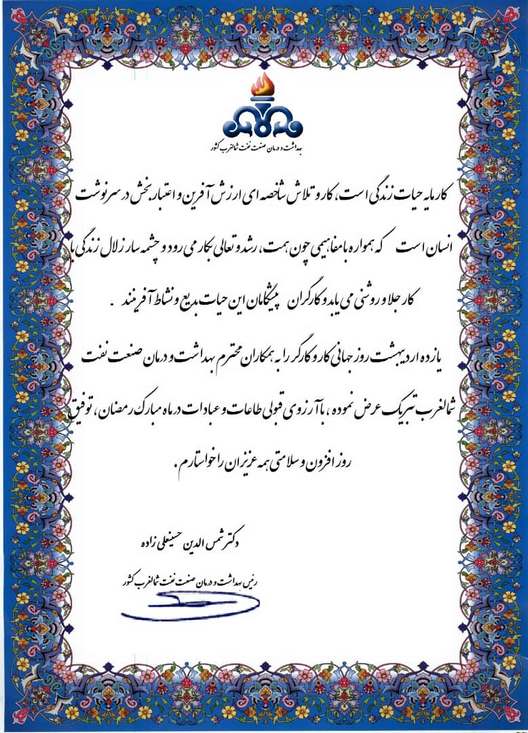 بهداشت و درمان صنعت نفت شمالغرب کشور
کار مایه حیات زندگی است، کار و تلاش شاخصه ای ارزش آفرین و اعتبار بخش در سرنوشت
انسان است که همواره با مفاهیمی چون همت، رشد و تعالی بکار می رود و چشمه سار زلال زندگی با
کار جلا و روشنی می یابد و کارگران پیشگامان این حیات بدیع و نشاط آفرینند .
یازده اردیبهشت روز جهانی کار و کارگر را به همکاران محترم بهداشت و درمان صنعت نفت
شمالغرب تبریک عرض نموده ، با آرزوی قبولی طاعات و عبادات در ماه مبارک رمضان ، توفیق
روز افزون و سلامتی همه عزیزان را خواستارم .
دکتر شمس الدین حسینعلی زاده
رئیس بهداشت و درمان صنعت نفت شمالغرب کشور